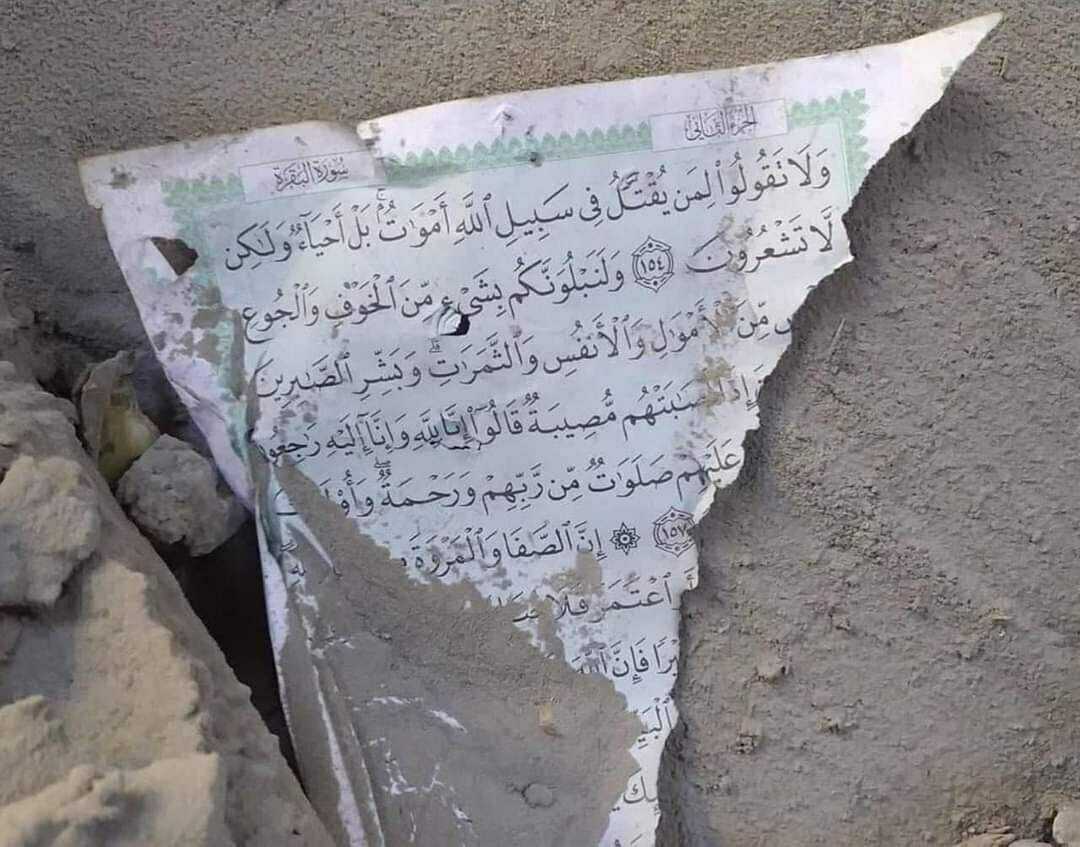 الجزء الثاني
سورة البقرة
وَلَا تَقُولُوا۟ لِمَن يُقْتَلُ فِى سَبِيلِ ٱللَّهِ أَمْوَٰتٌۢ ۚ بَلْ أَحْيَآءٌ وَلَٰكِن
لَّا تَشْعُرُونَ ١٥٤ وَلَنَبْلُوَنَّكُم بِشَىْءٍ مِّنَ ٱلْخَوْفِ وَٱلْجُوعِ
مِّنَ ٱلْأَمْوَٰلِ وَٱلْأَنفُسِ وَٱلثَّمَرَٰتِ ۗ وَبَشِّرِ ٱلصَّٰبِرِينَ
مُّصِيبَةٌ قَالُوٓا۟ إِنَّا لِلَّهِ وَإِنَّآ إِلَيْهِ رَٰجِعُونَ
عَلَيْهِمْ صَلَوَٰتٌ مِّن رَّبِّهِمْ وَرَحْمَةٌ ۖ
١٥٧ ۞ إِنَّ ٱلصَّفَا وَٱلْمَرْوَةَ
ٱعْتَمَرَ فَلَا
فَإِنَّ ٱللَّهَ